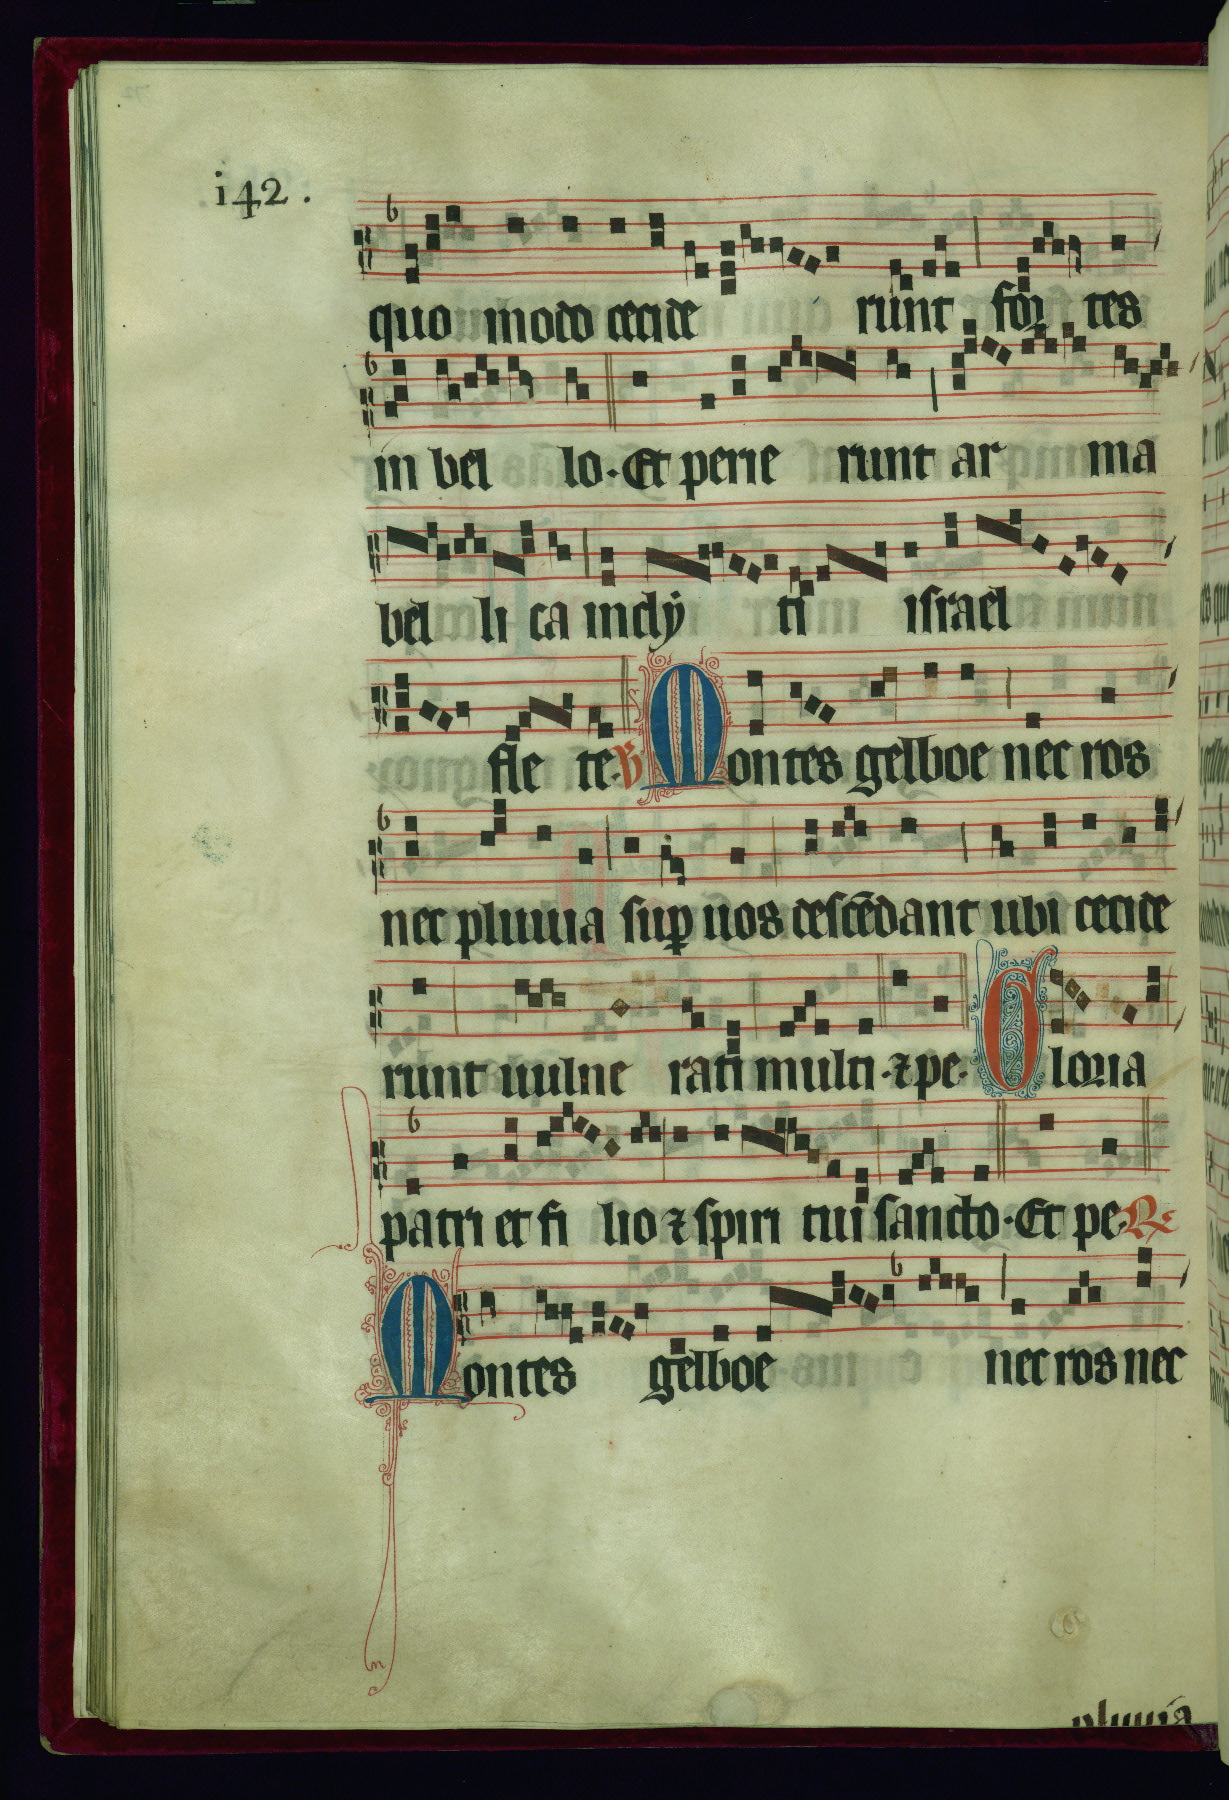 i42.
quo modo cecide runt for tes
in bel lo. Et perie runt ar ma
bel li ca incly ti israel
fle te. ℣ Montes gelboe nec ros
nec pluuia sup uos descēdant ubi cecide
runt uulne rati multi. ⁊ pe. Gloria
patri et fi lio ⁊ spiri tui sancto. Et pe. ℟
Montes gelboe nec ros nec
pluuia